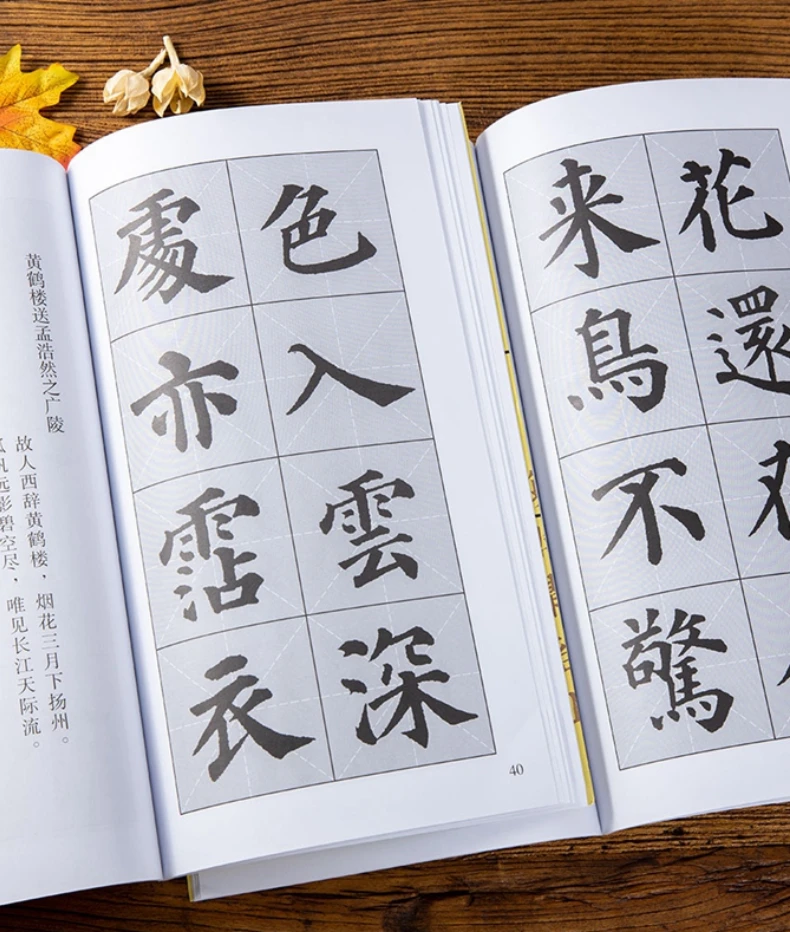 黄鹤楼送孟浩然之广陵
故人西辞黄鹤楼，烟花三月下扬州。
孤帆远影碧空尽，唯见长江天际流。
色入雲深
處亦霑衣
40
花還
来鳥不驚